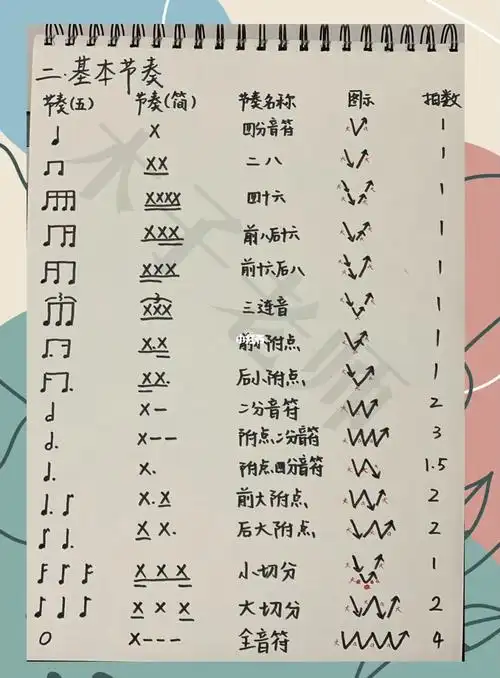 二.基本节奏
节奏(五) 节奏(简) 节奏名称 图示 拍数
X 四分音符 1
XX 二八 1
XXXX 四十六 1
XXX 前八后十六 1
XXX 前十六后八 1
3 XXX 三连音 1
X.X 前小附点 1
XX. 后小附点 1
X- 二分音符 2
X-- 附点二分音符 3
X. 附点四分音符 1.5
X.X 前大附点 2
X X. 后大附点 2
X X X 小切分 1
X X X 大切分 2
X--- 全音符 4
木子老师